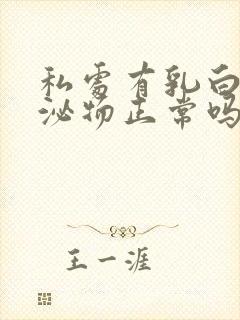 私处有乳白
泌物正常吗
王一涯